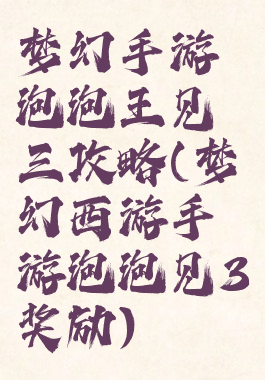 梦幻手游
泡泡王见
三攻略(梦
幻西游手
游泡泡见3
奖励)